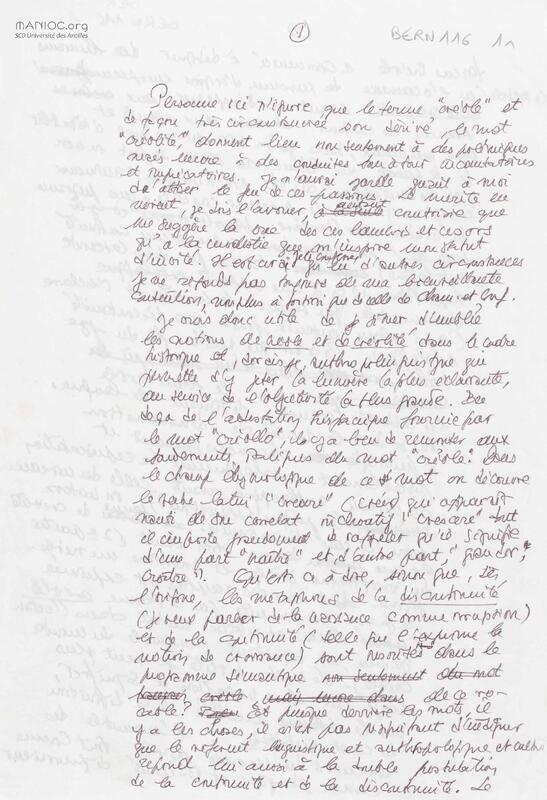 MANIOC.org
SCD Université des Antilles
1
BERN 116 11
Personne ici n'ignore que le terme "créole" et
de façon très circonstanciée son dérivé, le mot
"créolité", donnent lieu non seulement à des polémiques
mais encore à des conduites tour à tour
et Je n'aurai garde quant à moi
d'attiser le feu de ces passions. Le mérite en
revient, je dois l'avouer, à la seule contrition que
me suggère la vue des ces lauriers et
qu'à la modestie que m'inspire mon statut
d'invité. Il est vrai, je le confesse, qu'en d'autres circonstances
je ne réponds pas toujours de ma bienveillante
non plus à fortiori que de celle de
Je crois donc utile de d'emblée
les notions de créole et de créolité dans le cadre
historique et, qui
permette d'y jeter la lumière la plus éclairante,
au service de l'objectivité la plus grande. Au
deçà de l'attestation hispanique fournie par
le mot "criollo", il y a lieu de remonter aux
fondements du mot "créole". Dans
le champ étymologique de ce mot on découvre
le verbe latin "creare" (créer) qui apparaît
de son corrélat inchoatif "crescere" dont
il importe de rappeler qu'il signifie
d'une part "naître" et d'autre part, "grandir,
croître". Qu'est-ce à dire, sinon que, dès
l'origine, les métaphores de la discontinuité
(je veux parler de la naissance comme irruption)
et de la continuité (celle que exprime la
notion de croissance) sont inscrites dans le
programme sémantique non seulement du mot
créole, mais encore dans de ce vo-
cable? Et puisque derrière les mots, il
y a les choses, il n'est pas d'indiquer
que le référent linguistique et anthropologique et culturel
répond lui aussi à la double postulation
de la continuité et de la discontinuité. Le